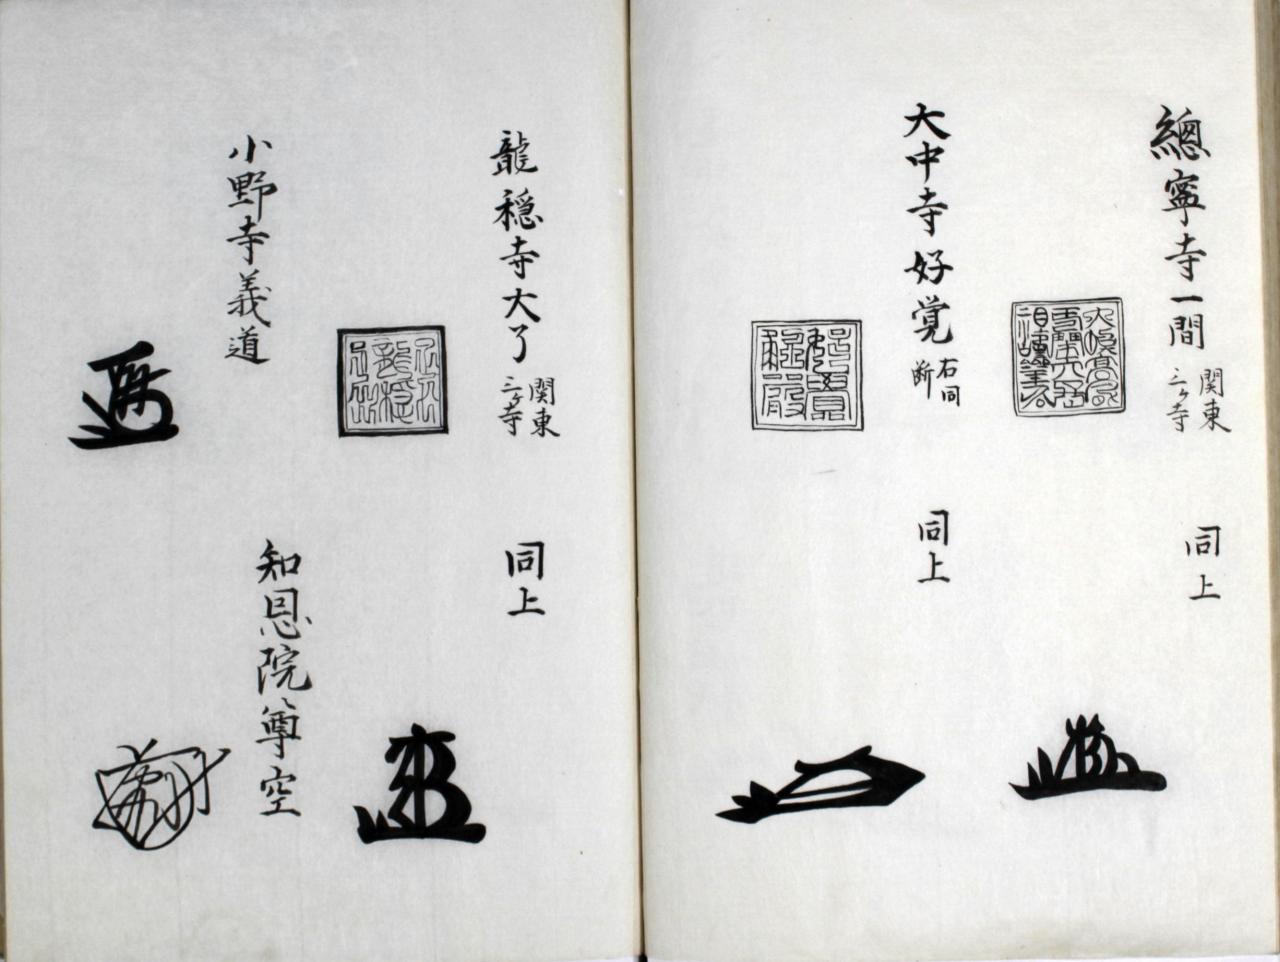 總寧寺一間
関東
三ヶ寺
同上
大中寺好覚
右同
断
同上
龍穏寺大了
関東
三ヶ寺
同上
小野寺義道
知恩院尊空